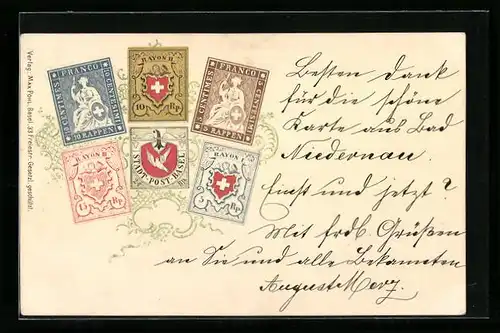 Verlag: Max Pohl, Basel, 33 Freiestr. Gesetzl. geschützt.
FRANCO
10 RAPPEN
RAYON II.
10 Rp.
FRANCO
5 RAPPEN
RAYON III.
15 Rp.
STADT-POST-BASEL
RAYON I.
5 Rp.
Besten Dank
für die schöne
Karte aus Bad
Niedernau.
Einst und jetzt?
Mit frdl. Grüßen
an Sie und alle Bekannten
August Merz